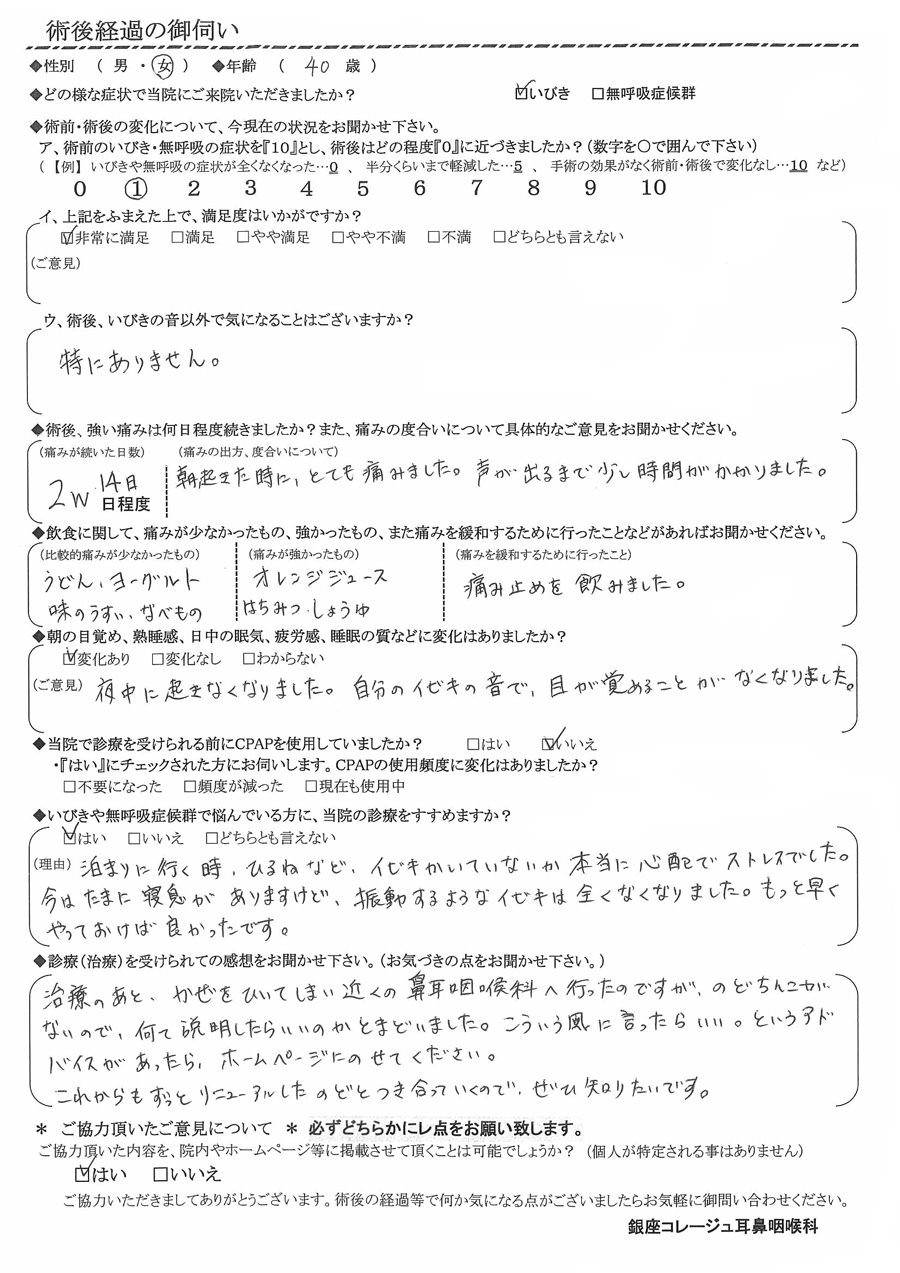 術後経過の御伺い
◆性別 ( 男 ・ 女 ) ◆年齢 ( 40 歳 )
◆どの様な症状で当院にご来院いただきましたか? ☑いびき □無呼吸症候群
◆術前・術後の変化について、今現在の状況をお聞かせ下さい。
ア、術前のいびき・無呼吸の症状を『10』とし、術後はどの程度『0』に近づきましたか?(数字を○で囲んで下さい)
(【例】 いびきや無呼吸の症状が全くなくなった…0 、 半分くらいまで軽減した…5 、 手術の効果がなく術前・術後で変化なし…10 など)
0 ① 2 3 4 5 6 7 8 9 10
イ、上記をふまえた上で、満足度はいかがですか?
☑非常に満足 □満足 □やや満足 □やや不満 □不満 □どちらとも言えない
(ご意見)
ウ、術後、いびきの音以外で気になることはございますか?
特にありません。
◆術後、強い痛みは何日程度続きましたか?また、痛みの度合いについて具体的なご意見をお聞かせください。
(痛みが続いた日数) (痛みの出方、度合いについて)
朝起きた時に、とても痛みました。声が出るまで少し時間がかかりました。
2W 14日
日程度
◆飲食に関して、痛みが少なかったもの、強かったもの、また痛みを緩和するために行ったことなどがあればお聞かせください。
(比較的痛みが少なかったもの) (痛みが強かったもの) (痛みを緩和するために行ったこと)
うどん、ヨーグルト オレンジジュース 痛み止めを飲みました。
味のうすい、なべもの はちみつ・しょうゆ
◆朝の目覚め、熟睡感、日中の眠気、疲労感、睡眠の質などに変化はありましたか?
☑変化あり □変化なし □わからない
(ご意見) 夜中に起きなくなりました。自分のイビキの音で、目が覚めることがなくなりました。
◆当院で診療を受けられる前にCPAPを使用していましたか? □はい ☑いいえ
・『はい』にチェックされた方にお伺いします。CPAPの使用頻度に変化はありましたか?
□不要になった □頻度が減った □現在も使用中
◆いびきや無呼吸症候群で悩んでいる方に、当院の診療をすすめますか?
☑はい □いいえ □どちらとも言えない
(理由) 泊まりに行く時、ひるねなど、イビキかいていないか本当に心配でストレスでした。
今はたまに寝息がありますけど、振動するようなイビキは全くなくなりました。もっと早く
やっておけば良かったです。
◆診療(治療)を受けられての感想をお聞かせ下さい。(お気づきの点をお聞かせ下さい。)
治療のあと、かぜをひいてしまい近くの鼻耳咽喉科へ行ったのですが、のどちんこが
ないので、何て説明したらいいのかとまどいました。こういう風に言ったらいい。というアド
バイスがあったら、ホームページにのせてください。
これからもずっとリニューアルしたのどとつき合っていくので、ぜひ知りたいです。
* ご協力頂いたご意見について * 必ずどちらかにレ点をお願い致します。
ご協力頂いた内容を、院内やホームページ等に掲載させて頂くことは可能でしょうか? (個人が特定される事はありません)
☑はい □いいえ
ご協力いただきましてありがとうございます。術後の経過等で何か気になる点がございましたらお気軽に御問い合わせください。
銀座コレージュ耳鼻咽喉科